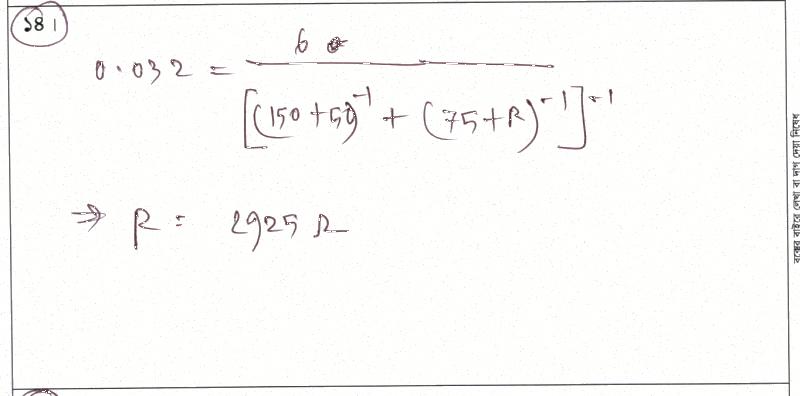 ১৪।
0.032 = 6 / [(150+50)^-1 + (75+R)^-1]^-1
⇒ R = 2925 Ω
বক্সের বাইরে লেখা বা দাগ দেয়া নিষেধ